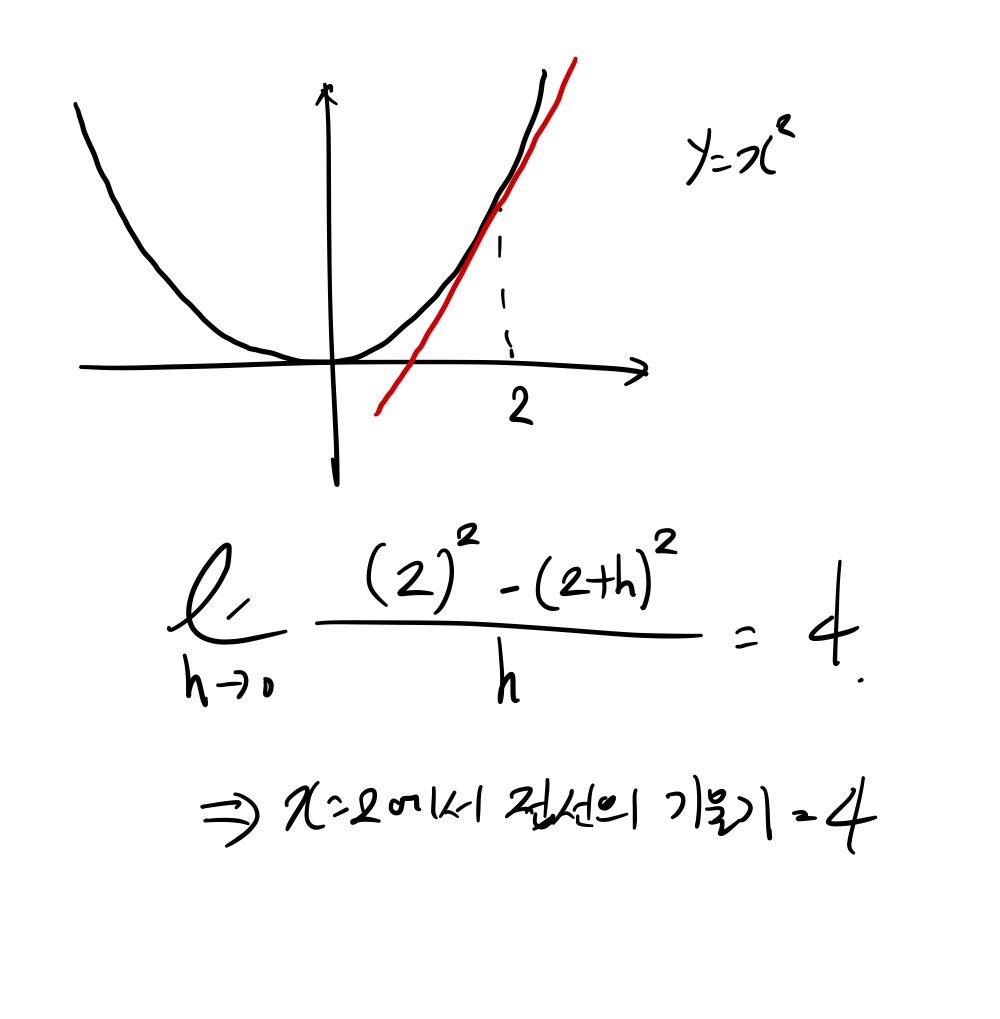 y=x²
2
lim h→0 ((2)² - (2+h)²)/h = 4.
⇒ x=2에서 접선의 기울기=4